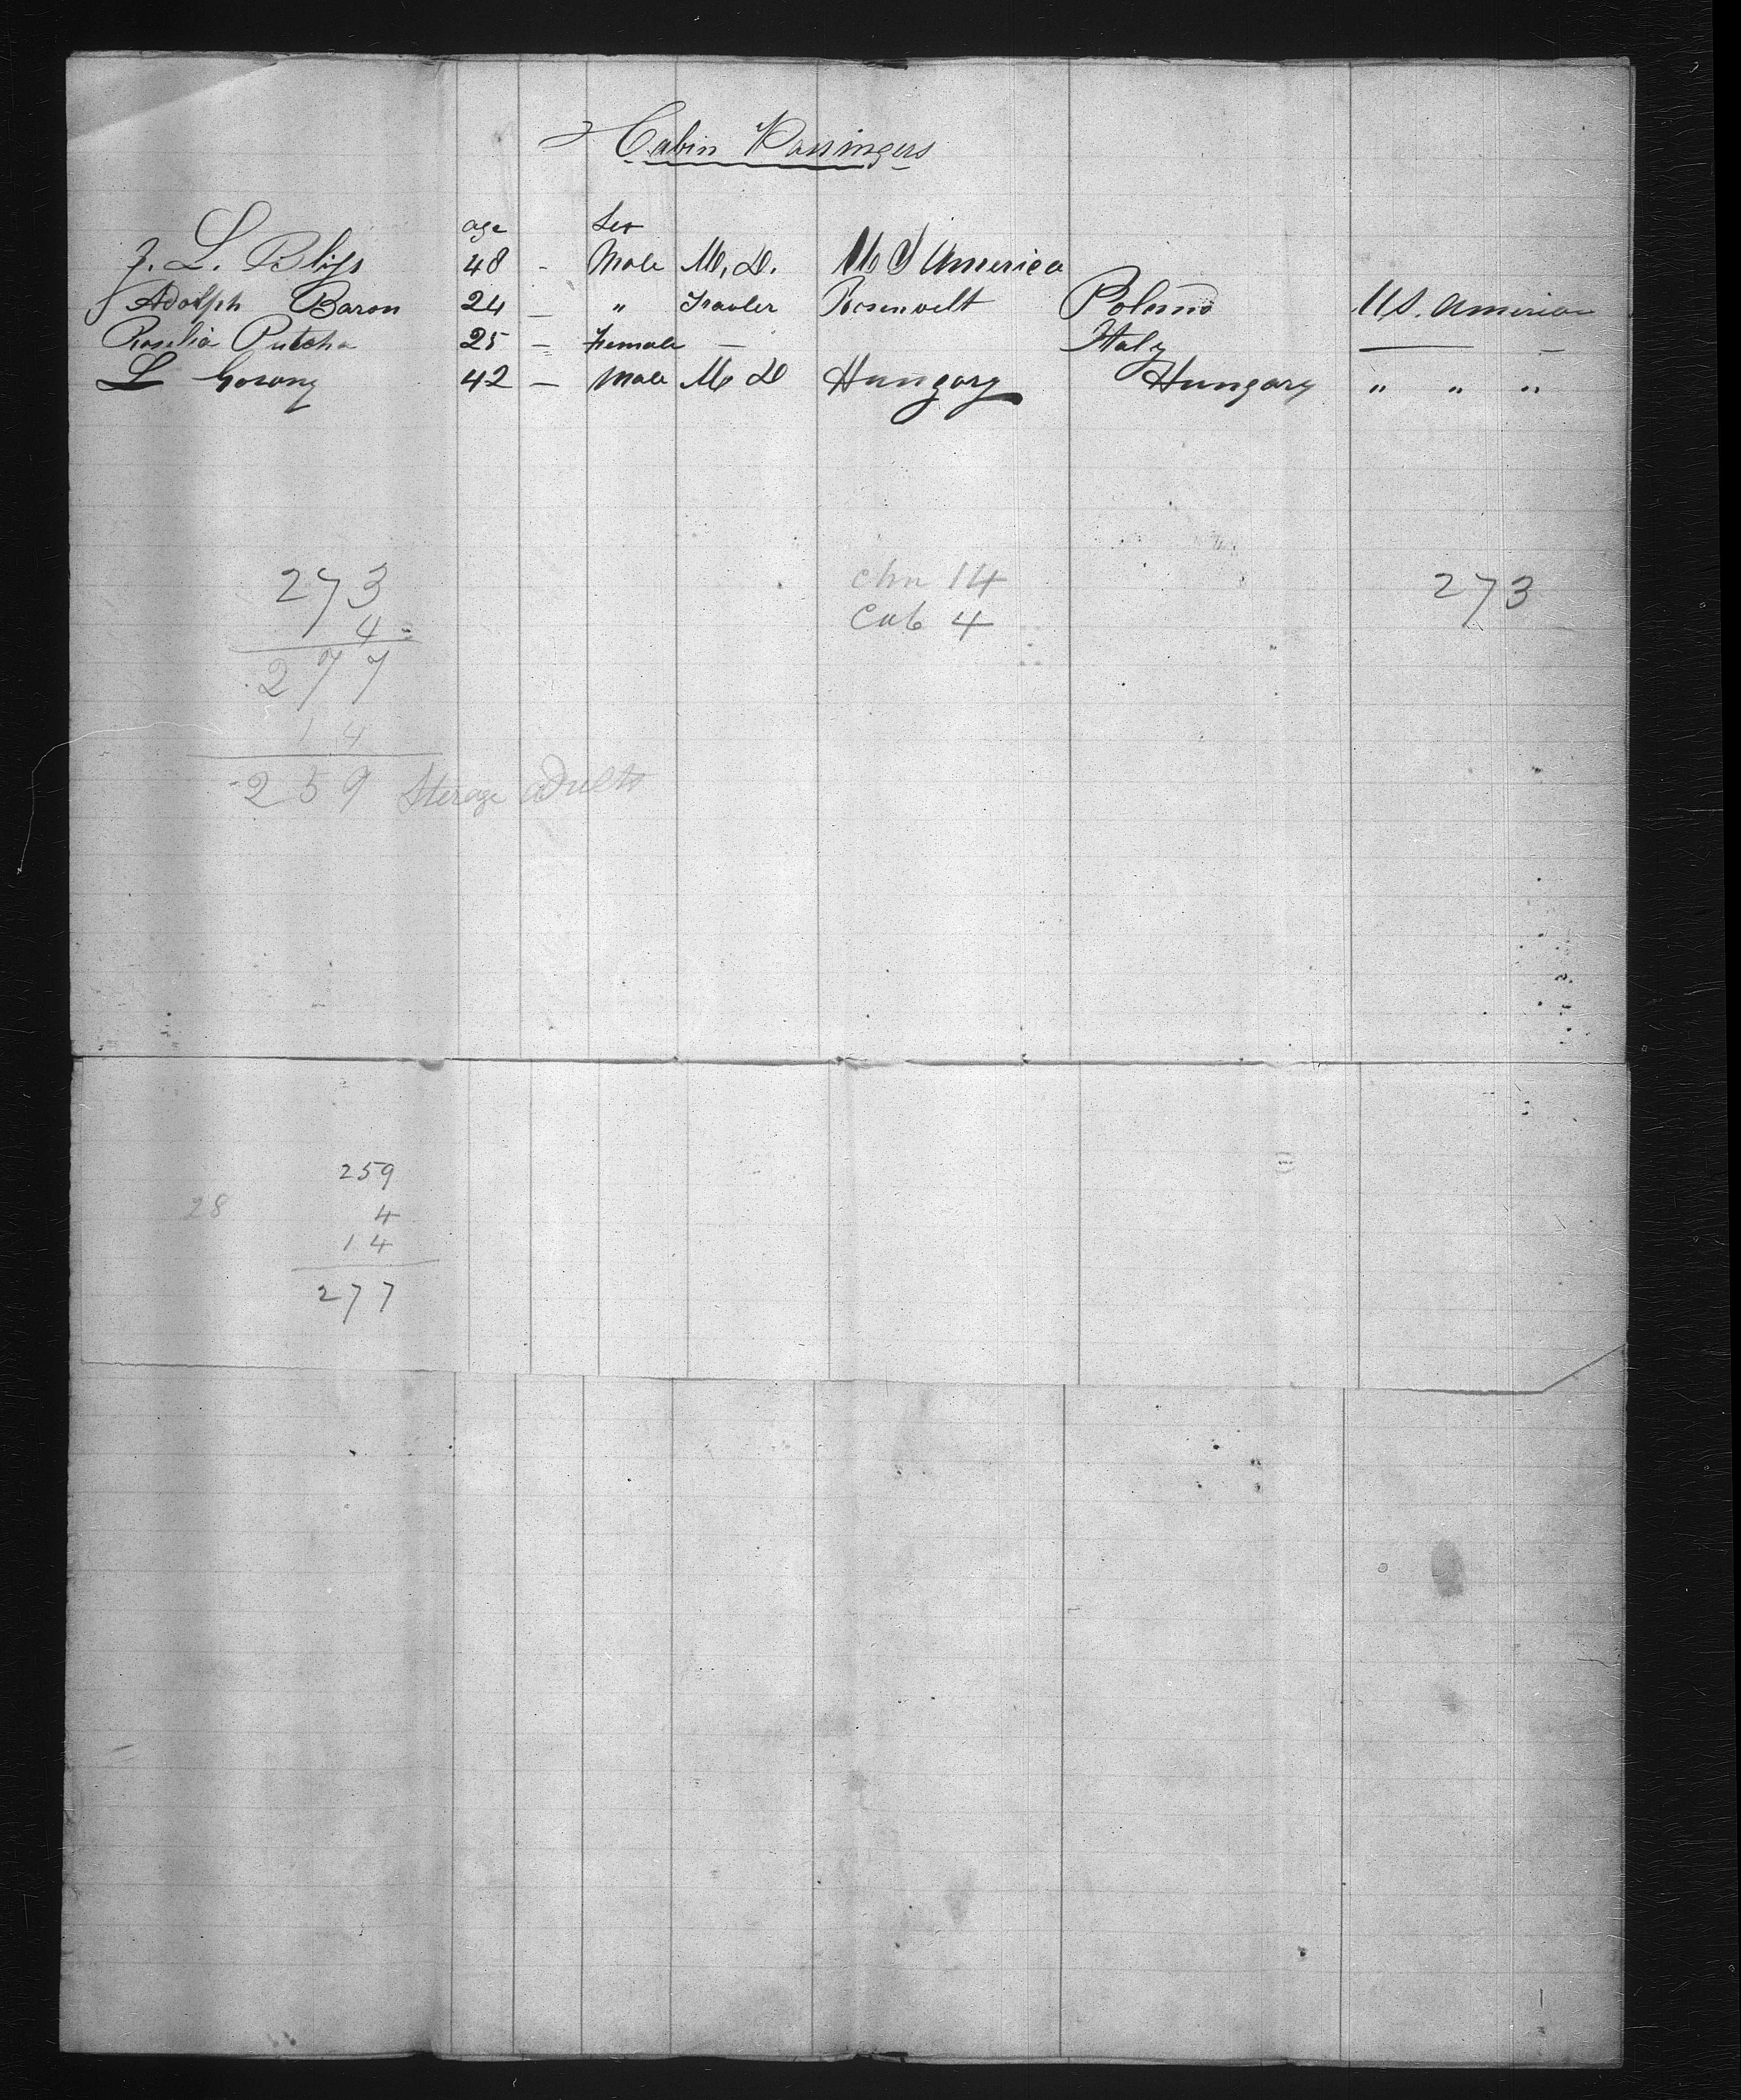 Cabin Passingers
age Sex
J. L. Bliss 48 - Male M. D. U S America
Adolph Baron 24 - " Travler Rosenvelt Polenio U S. America
Roselia Putcha 25 - Female - Italy — -
L Gosony 42 - Male M D Hungary Hungary " " "
273 chn 14 273
4 Cab 4
277
14
259 Sterage adults
259
28 4
14
277